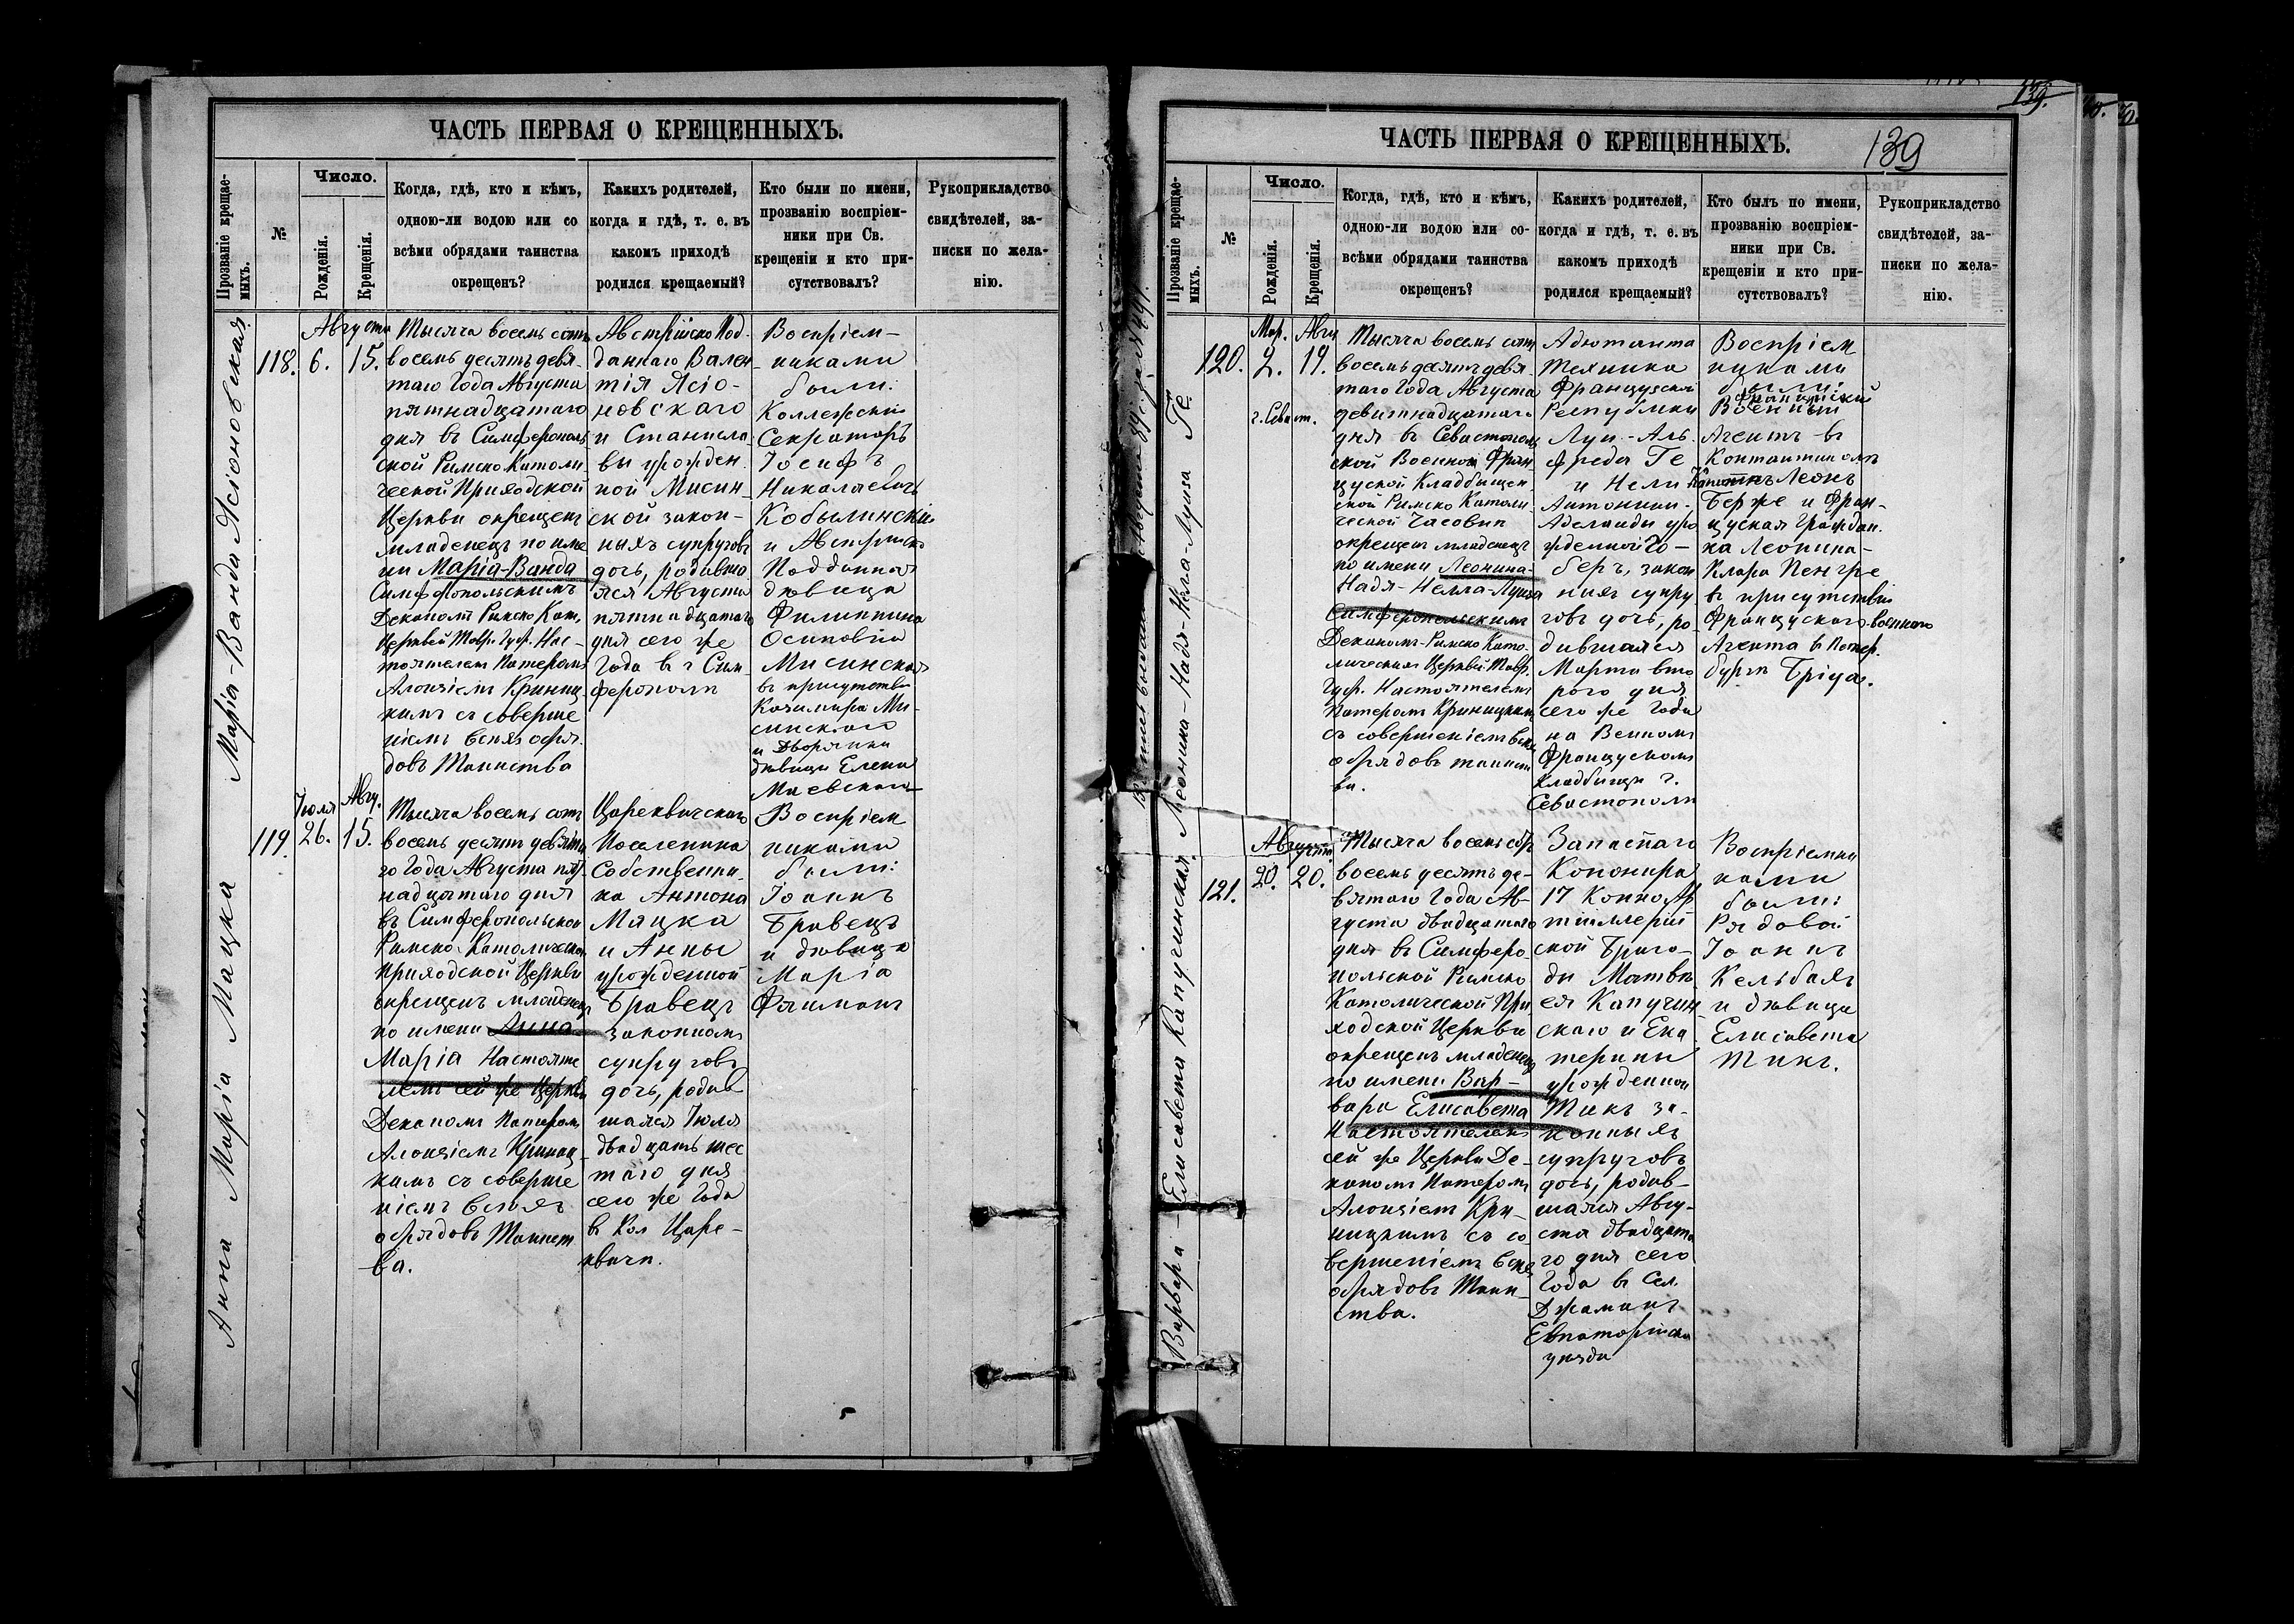 ЧАСТЬ ПЕРВАЯ О КРЕЩЕННЫХЪ.
Прозваніе крещае-
мыхъ.
№
Число.
Рожденія.
Крещенія.
Когда, гдѣ, кто и кѣмъ,
одною-ли водою или со
всѣми обрядами таинства
окрещенъ?
Какихъ родителей,
когда и гдѣ, т. е. въ
какомъ приходѣ
родился крещаемый?
Кто были по имени,
прозванію воспріем-
ники при Св.
крещеніи и кто при-
сутствовалъ?
Рукоприкладство
свидѣтелей, за-
писки по жела-
нію.
Марія-Ванда Ясіоновская
118.
Августа
6. 15.
Тысяча восемь сотъ
восемь десятъ девя-
таго Года Августа
пятнадцатаго
дня въ Симферополь
ской Римско Католи-
ческой Приходской
Церкви окрещенъ
младенецъ по име
ни Марія-Ванда
Симферопольскимъ
Деканомъ Римско Кат.
Церквей Тавр. Губ. Нас-
тоятелемъ Патеромъ
Алоизіемъ Криниц
кимъ съ соверше
ніемъ всѣхъ обря-
довъ Таинства
Австрійско Под-
даннаго Вален-
тія Ясіо-
новскаго
и Станисла-
вы урожден-
ной Мисин-
ской закон-
ныхъ супруговъ
дочь, родивша
яся Августа
пятнадцатаго
дня сего же
Года въ г Сим-
ферополи
Воспріем-
никами
были:
Коллежскій
Секретарь
Іосифъ
Николаевичъ
Кобылинскій
и Австрійско
Подданная
дѣвица
Филиппина
Осиповна
Мисинская
въ присутствіи
Казимира Ми-
синскаго
и Дворянки
дѣвицы Елены
Маевской
Анна Марія Мацка
119.
Іюля Авгу.
26. 15.
Тысяча восемь сотъ
восемь десятъ девята
го Года Августа пят-
надцатаго дня
въ Симферопольской
Римско-Католической
Приходской Церкви
окрещенъ младенецъ
по имени Анна
Марія Настояте
лемъ сей же Церкви
Деканомъ Патеромъ
Алоизіемъ Криниц-
кимъ съ соверше
ніемъ всѣхъ
обрядовъ Таинст
ва.
Цареквичскаго
Поселенина
Собственни-
ка Антона
Мацка
и Анны
урожденной
Бравецъ
законномъ
супруговъ
дочь, родив
шаяся Іюля
двадцать шес
таго дня
сего же Года
в Кол Царе-
квичи.
Воспріем
никами
были:
Іоаннъ
Бравецъ
и дѣвица
Марія
Фриманъ
139.
139
ЧАСТЬ ПЕРВАЯ О КРЕЩЕННЫХЪ.
Прозваніе крещае-
мыхъ.
№
Число.
Рожденія.
Крещенія.
Когда, гдѣ, кто и кѣмъ,
одною-ли водою или со-
всѣми обрядами таинства
окрещенъ?
Какихъ родителей,
когда и гдѣ, т. е. въ
какомъ приходѣ
родился крещаемый?
Кто былъ по имени,
прозванію воспріем-
ники при Св.
крещеніи и кто при-
сутствовалъ?
Рукоприкладство
свидѣтелей, за-
писки по жела-
нію.
Леонина-Надя-Нелла-Луиза Ге
120.
Мар. Авгу
2. 19.
г. Севаст.
Тысяча восемь сотъ
восемь десятъ девя-
таго Года Августа
девятнадцатаго
дня въ Севастополь
ской Военной Фран-
цуской Кладбищен-
ской Римско Католи-
ческой Часовни
окрещенъ младенецъ
по имени Леонина-
Надя-Нелла-Луиза
Симферопольскимъ
Деканомъ-Римско Като-
лическихъ Церквей Тавр.
Губ. Настоятелемъ
Патеромъ Криницкимъ
съ совершеніемъ всѣхъ
обрядовъ таинст
ва.
Адютанта
Техника
Французской
Республики
Луи-Аль-
фреда Ге
и Нели
Антонины-
Аделаиды уро
жденной Го-
беръ, закон
ныхъ супру
говъ дочь, ро-
дившаяся
Марта вто
рого дня
сего же Года
на Венномъ
Французскомъ
Кладбищи г.
Севастополи
Воспріем
никами
были:
Французскій
Военный
Агентъ въ
Константинопъ
Леонъ
Берже и Фран-
цуская Граждан.
ка Леонина-
Клара Пенгре
въ присутствіи
Французскаго военнаго
Агента в Петер.
бурги Бріуа.
Варвара-Елисавета Капучинская
121.
Августа
20. 20.
Тысяча восемь сотъ
восемь десятъ де-
вятаго Года Ав-
густа двадцатаго
дня въ Симферо-
польской Римско
Католической При
ходской Церкви
окрещенъ младенецъ
по имени Вар-
вара Елисавета
Настоятелемъ
сей же Церкви Де-
каномъ Патеромъ
Алоизіемъ Кри-
ницкимъ съ со
вершеніемъ всѣхъ
обрядовъ Таин-
ства.
Запаснаго
Канонира
17 Конно Ар
тиллерій
ской Брига-
ды Матвѣ
ея Капучин
скаго и Ека
терины
урожденной
Тикъ за-
конныхъ
супруговъ
дочь, родив-
шаяся Авгу-
ста двадцата
го дня сего
Года въ Сел.
Джаминъ
Евпаторійска
уѣзда
Воспріемни
ками
были:
Рядовой
Іоаннъ
Кельбахъ
и дѣвица
Елисавета
Тикъ.